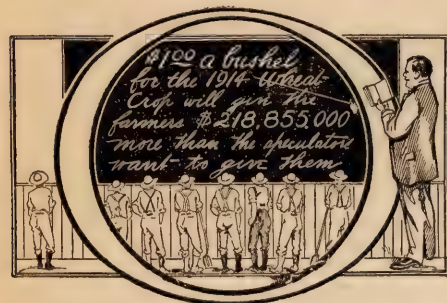 $1.00 a bushel
for the 1914 Wheat
Crop will give the
farmers $218,855,000
more than the speculators
want to give them